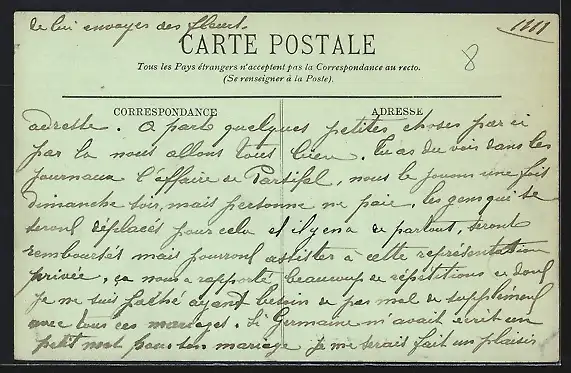 de lui envoyer des fleurs.
CARTE POSTALE
8
Tous les Pays étrangers n'acceptent pas la Correspondance au recto.
(Se renseigner à la Poste).
CORRESPONDANCE
ADRESSE
adresse. A part quelques petites choses par ci
par la nous allons tous bien. Tu as du voir dans les
journaux l'affaire de Parsifal, nous le jouons une fois
Dimanche soir, mais personne ne paie, les gens qui se
seront déplacés pour cela et il y en a de partout, seront
remboursés mais pourront assister à cette représentation
privée, ça nous a rapporté beaucoup de répétitions et dont
je ne suis pas faché ayant besoin de pas mal de supplément
avec tous ces mariages. Si Germaine m'avait écrit un
petit mot pour son mariage je me serais fait un plaisir